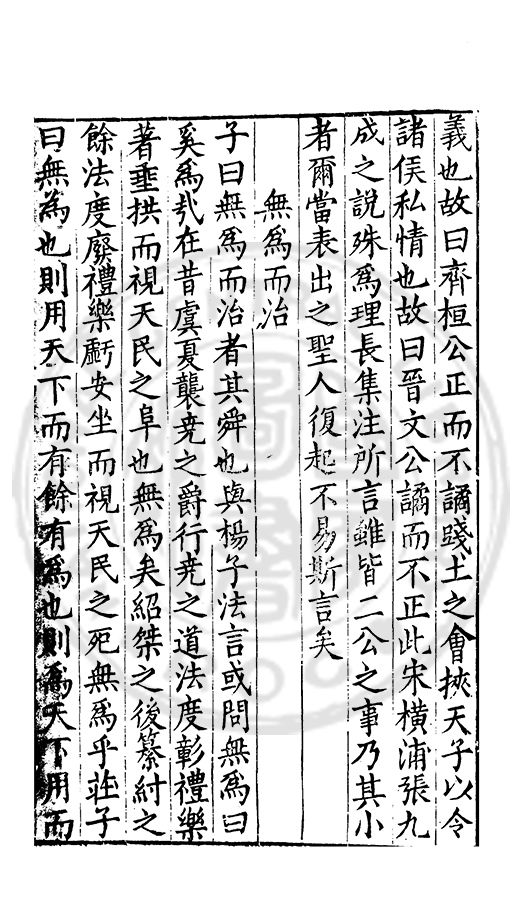 義也故曰齊桓公正而不譎踐土之會挾天子以令
諸侯私情也故曰晉文公譎而不正此宋橫浦張九
成之說殊爲理長集注所言雖皆二公之事乃其小
者爾當表出之聖人復起不易斯言矣
無爲而治
子曰無爲而治者其舜也與楊子法言或問無爲曰
奚爲㢤在昔虞夏襲堯之爵行堯之道法度彰禮樂
著垂拱而視天民之阜也無爲矣紹桀之後纂紂之
餘法度廢禮樂虧安坐而視天民之死無爲乎莊子
曰無為也則用天下而有餘有爲也則爲天下用而